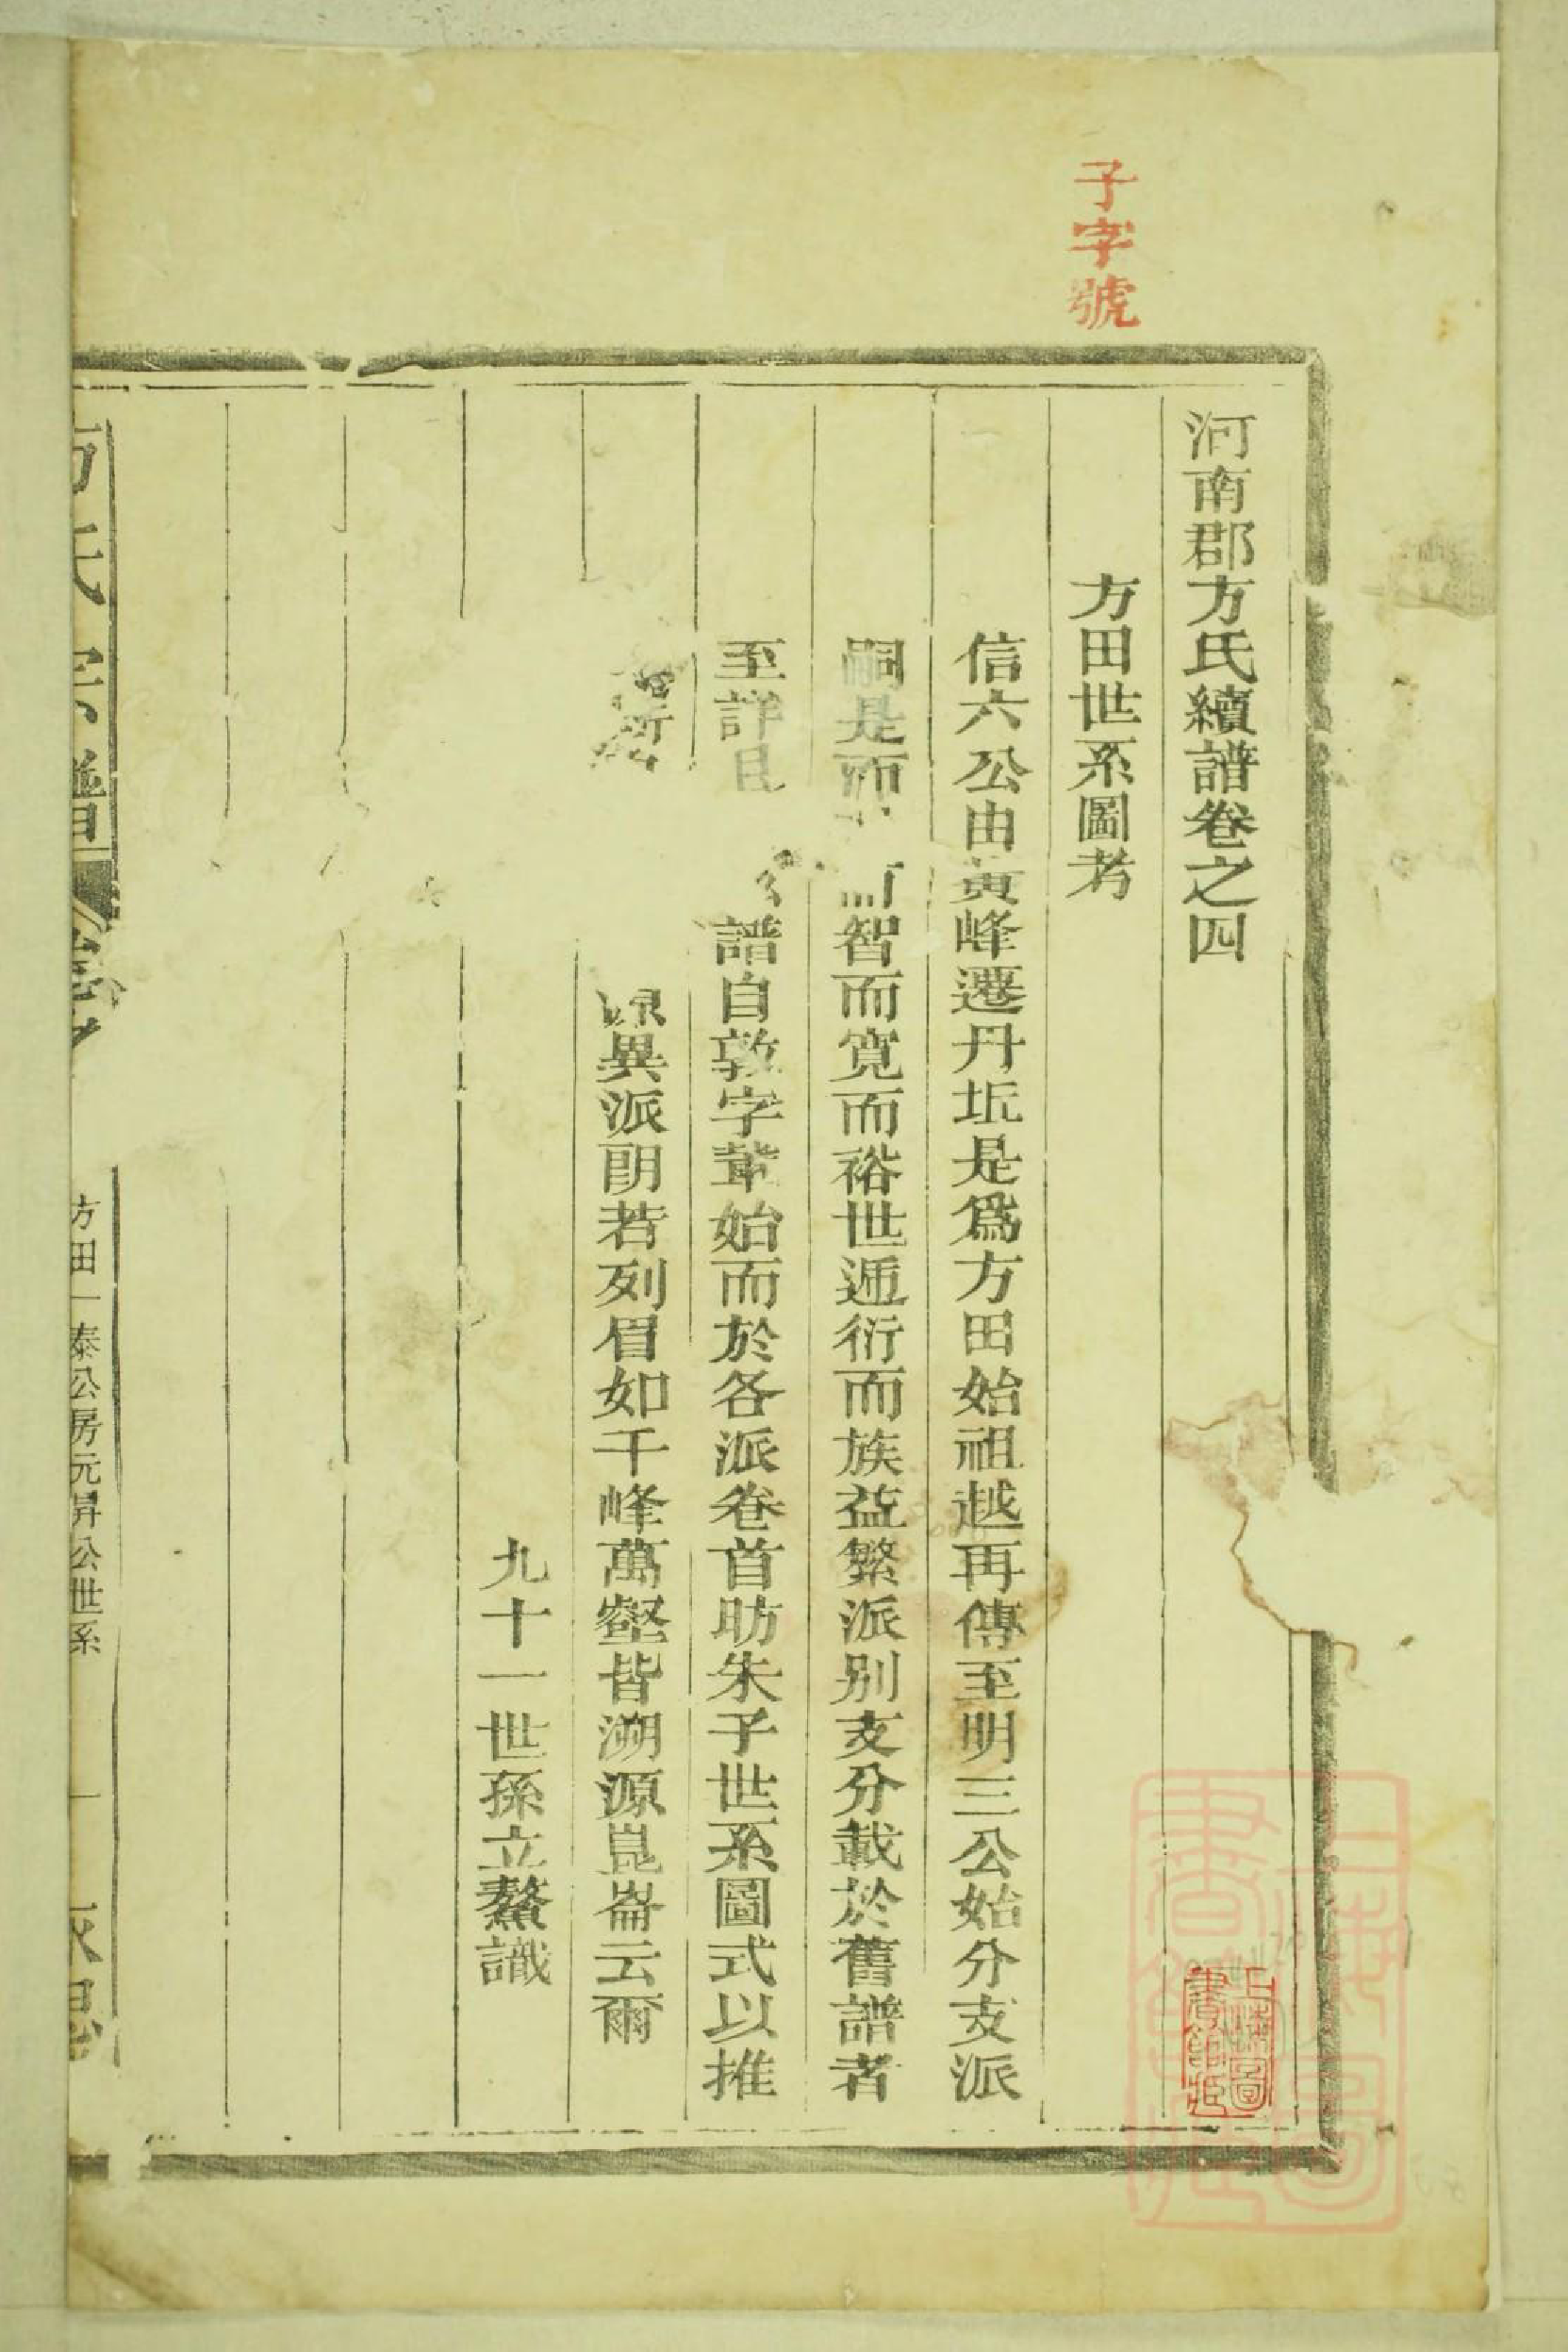 子字號
河南郡方氏續譜卷之四
方田世系圖考
信六公由黃峰遷丹坃是爲方田始祖越再傳至明三公始分支派
嗣是而 而智而寬而裕世遞衍而族益繁派別支分載於舊譜者
至詳且 譜自敦字輩始而於各派卷首昉朱子世系圖式以推
所 源異派朗若列眉如千峰萬壑皆溯源崑崙云爾
九十一世孫立鰲識
方氏宗譜
方田一泰公房元昇公世系
一
上海圖書館藏
上海圖書館藏